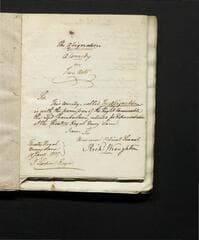 The Assignation
A Comedy
in
Two Acts
Sir
This Comedy, called The Assignation
is with the permission of the Right Honorable
the Lord Chamberlain, intended for Representation
at the Theatre Royal Drury Lane
I am Sir
Your most Obedient Servant
Richd Wroughton
Theatre Royal
Drury Lane